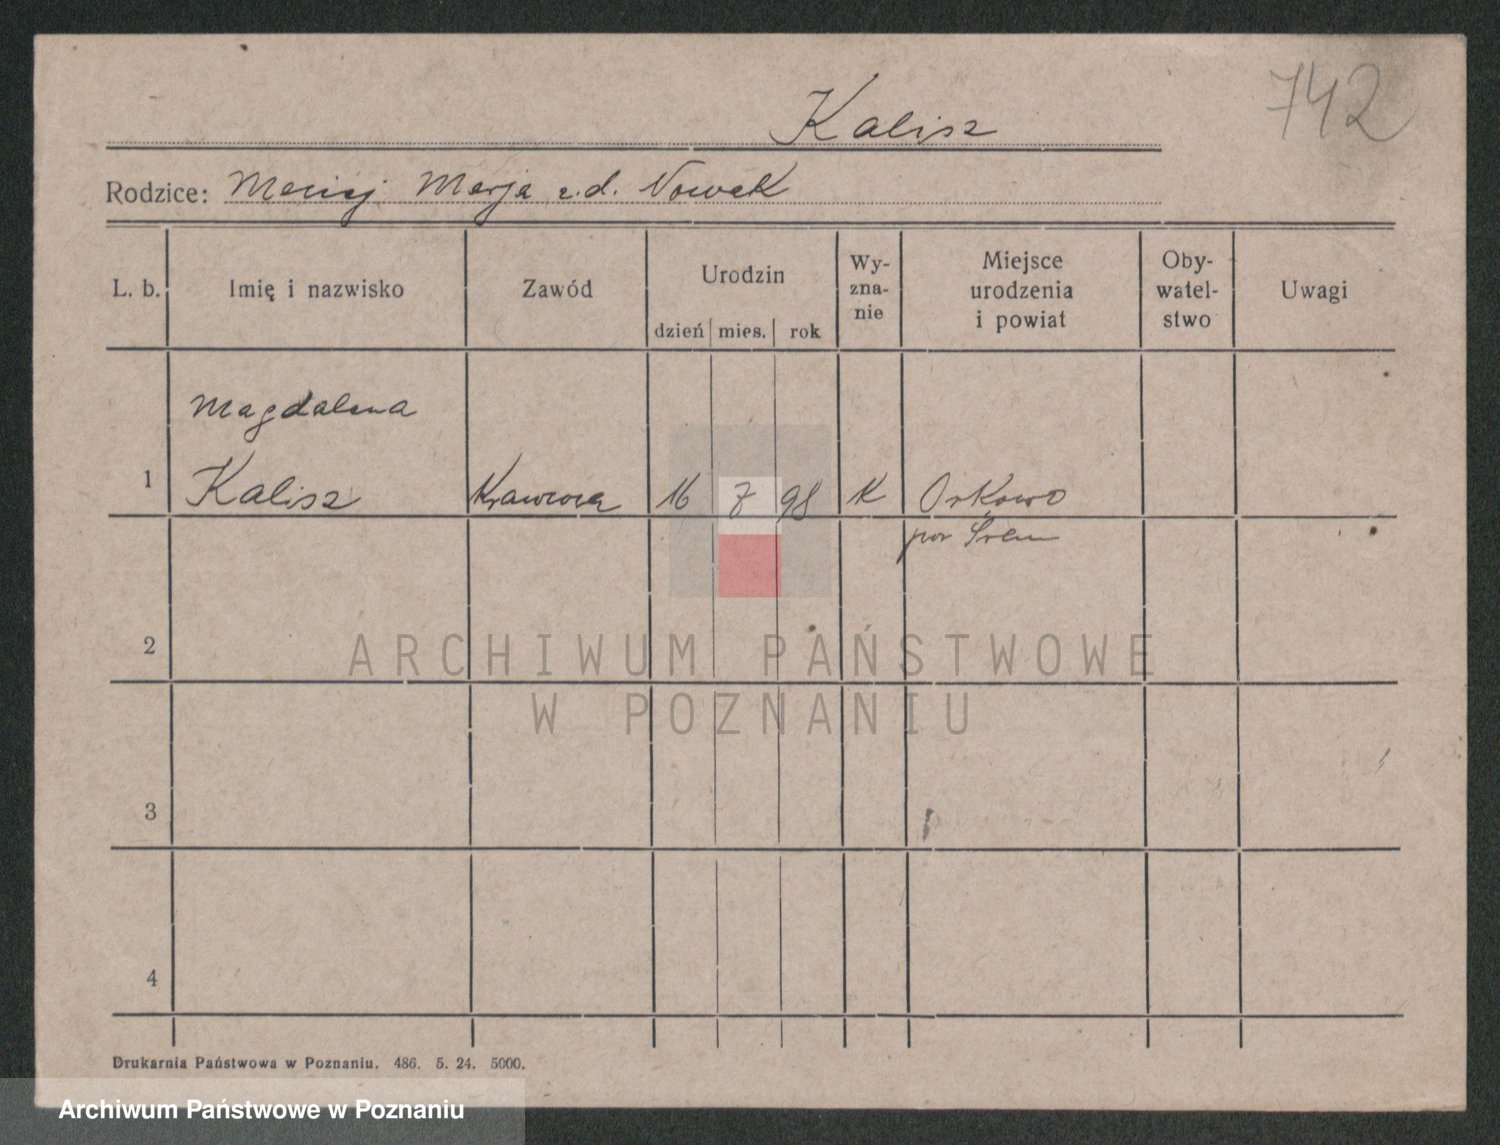 742
Kalisz
Rodzice: Maciej Marja z.d. Nowak
L. b. Imię i nazwisko Zawód Urodzin dzień mies. rok Wy-zna-nie Miejsce urodzenia i powiat Oby-watel-stwo Uwagi
Magdalena
1 Kalisz Krawcowa 16 7 98 K Orkowo
pow Śrem
2
ARCHIWUM PAŃSTWOWE
W POZNANIU
3
4
Drukarnia Państwowa w Poznaniu. 486. 5. 24. 5000.
Archiwum Państwowe w Poznaniu